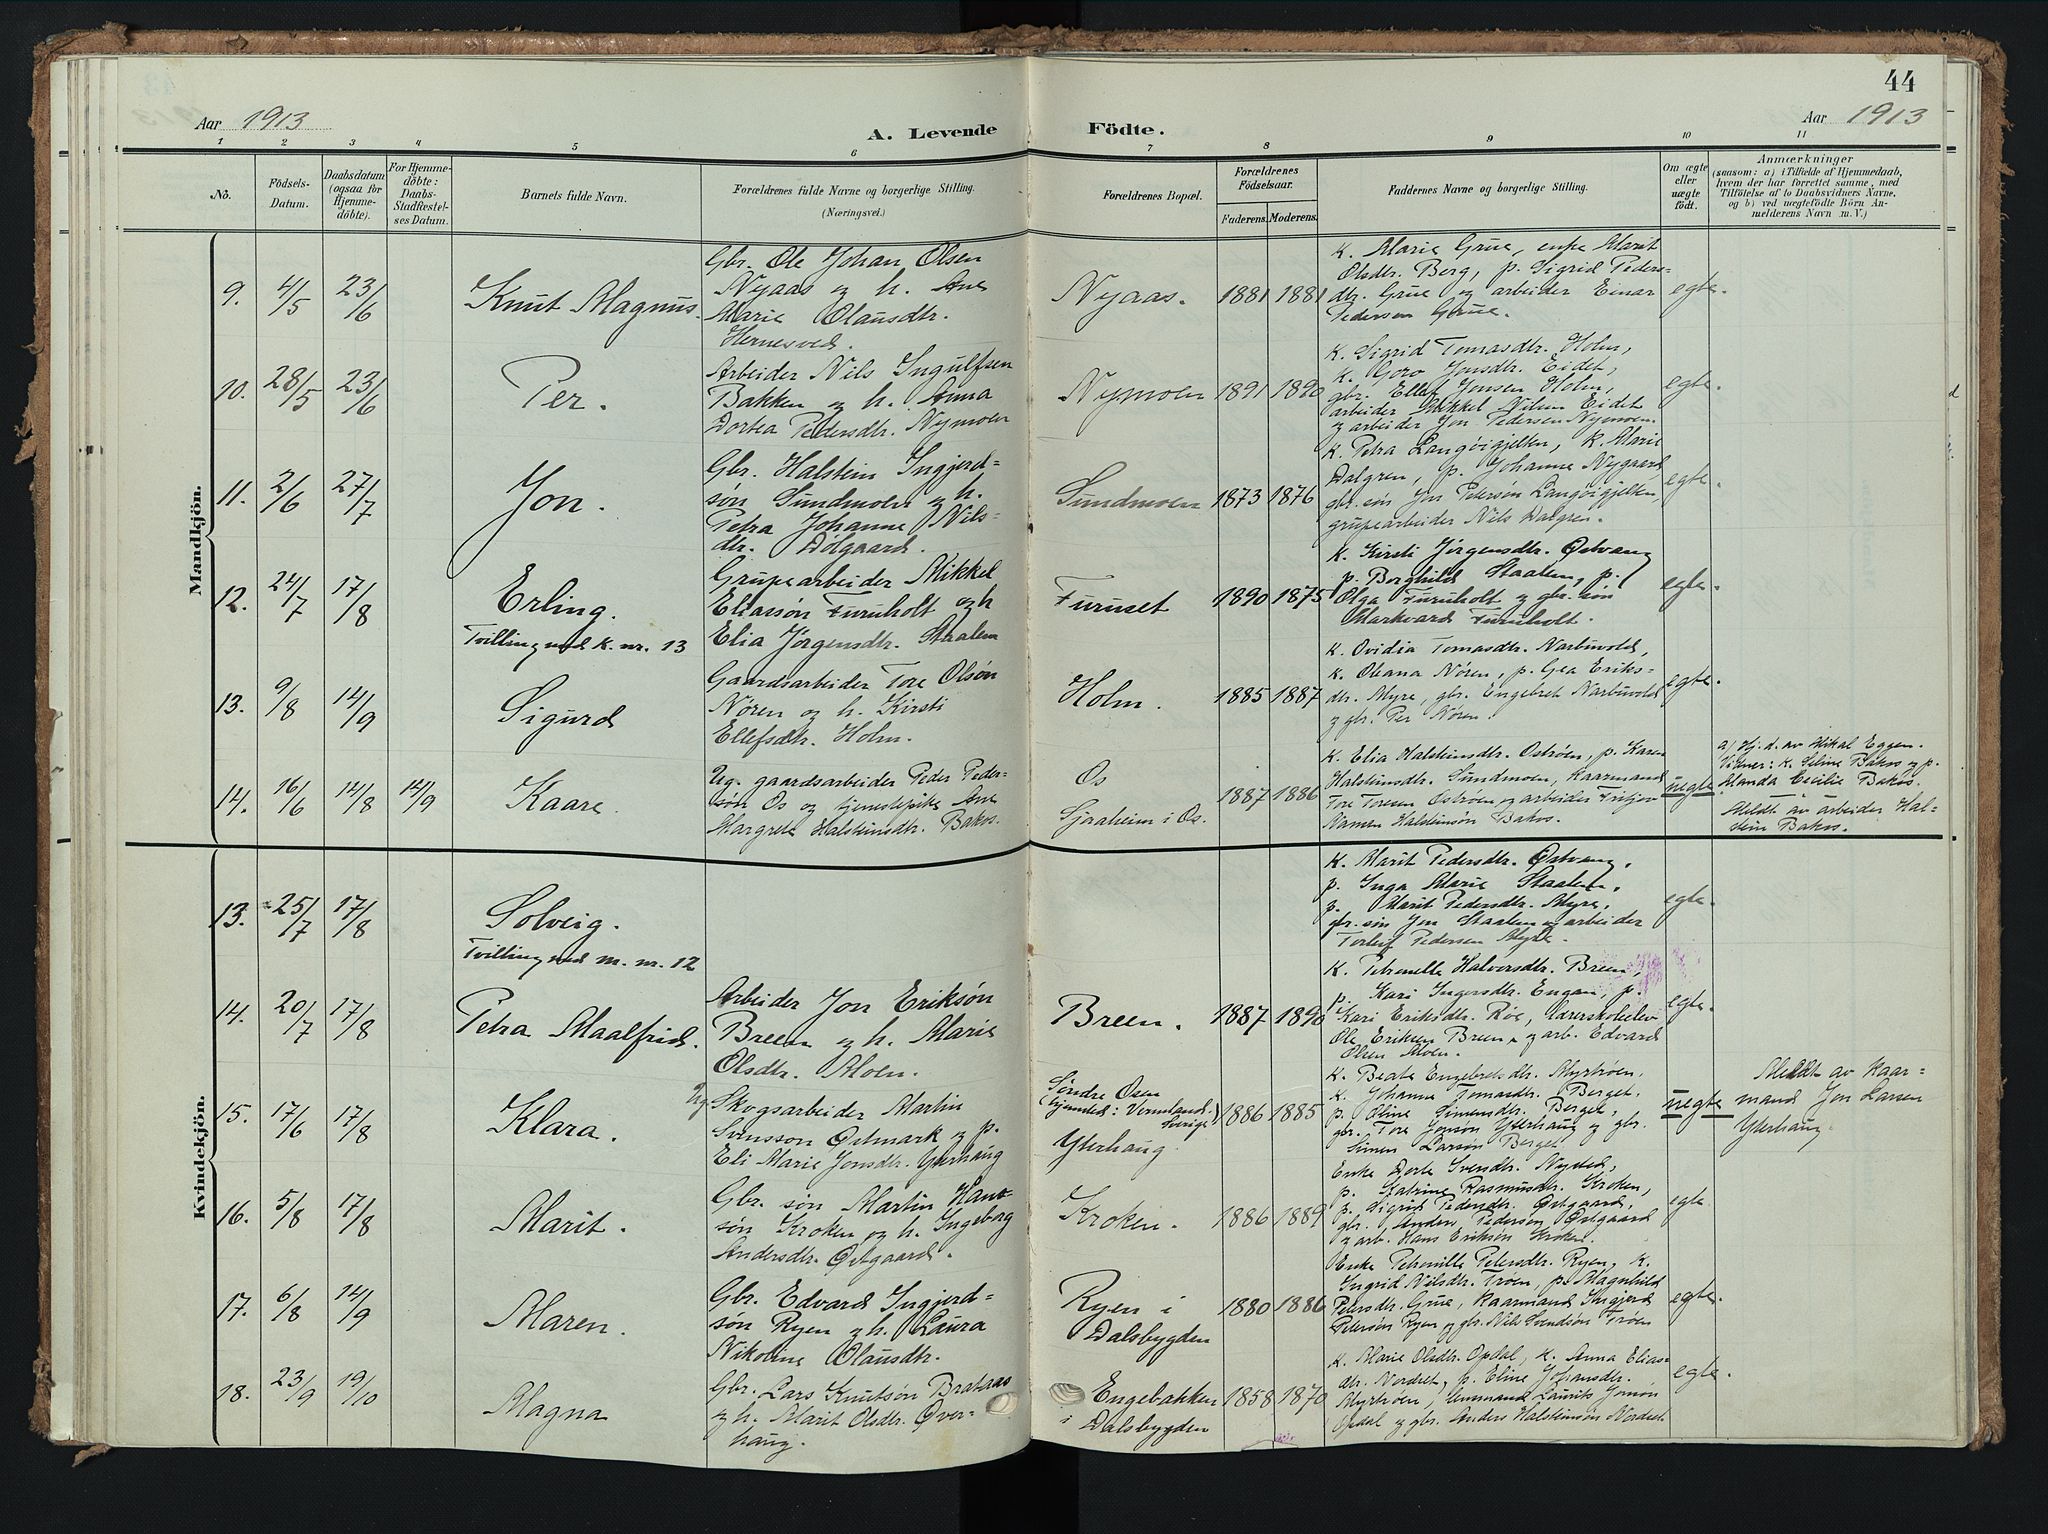 44
Aar 1913
A. Levende Födte.
Aar 1913
1 2 3 4 5 6 7 8 9 10 11
No.
Födsels-Datum.
Daabsdatum (ogsaa for Hjemme-döbte).
For Hjemme-döbte: Daabs-Stadfæstel-ses Datum.
Barnets fulde Navn.
Forældrenes fulde Navne og borgerlige Stilling.
(Næringsvei.)
Forældrenes Bopæl.
Forældrenes Födselsaar.
Faderens. Moderens.
Faddernes Navne og borgerlige Stilling.
Om ægte eller uægte födt.
Anmærkninger
(saasom: a) i Tilfælde af Hjemmedaab,
hvem der har forrettet samme, med
Tilföielse af to Daabsvidners Navne,
og b) ved uægtefödte Börn An-
melderens Navn m. V.)
Mandkjön.
9. 4/5 23/6 Knut Magnus.
Gbr. Ole Johan Olsen
Nyaas og h. Ane
Marie Olausdtr.
Hernesved.
Nyaas. 1881 1881
K. Marie Grue, enke Marit
Olsdtr. Berg, p. Sigrid Peders-
dtr. Grue og arbeider Einar
Pedersen Grue.
egte.
10. 28/5 23/6 Per.
Arbeider Nils Ingulfsen
Bakken og h. Anna
Dortea Pedersdtr. Nymoen
Nymoen 1891 1890
K. Sigrid Tomasdtr. Holm,
K. Goro Jonsdtr. Eidet,
gbr. Ellef Jonsen Holm,
arbeider Mikkel Nilsen Eidet
og arbeider Jon Pedersen Nymoen.
egte.
11. 2/6 27/7 Jon.
Gbr. Halstein Ingjerd-
søn Sundmoen og h.
Petra Johanne Nils-
dtr. Dølgaard.
Sundmoen 1873 1876
K. Petra Langøigjelten, K. Marie
Dalgren, p. Johanne Nygaard,
gbr. søn Jon Petersøn Langøigjelten
grupearbeider Nils Dalgren.
egte.
12. 24/7 17/8 Erling.
Tvilling med k. nr. 13
Grupearbeider Mikkel
Eliassøn Furuholt og h
Elia Jørgensdtr. Staalen
Furuset 1890 1875
K. Kirsti Jørgensdtr. Østvang
p. Borghild Staalen, p.
Olga Furuholt og gbr. søn
Markvard Furuholt.
egte.
13. 9/8 14/9 Sigurd
Gaardsarbeider Tore Olsøn
Nören og h. Kirsti
Ellefsdtr. Holm.
Holm. 1885 1887
K. Ovidia Tomasdtr. Narbuvold,
K. Oleana Nören, p. Gea Eriks-
dtr. Myre, gbr. Engebret Narbuvold
og gbr. Per Nören.
egte.
14. 16/6 14/8 14/9 Kaare.
Ug. gaardsarbeider Peder Peder-
søn Os og tjenestepike Ane
Margrete Halsteinsdtr. Bakos.
Os
Sjaaheim i Os. 1887 1886
K. Elia Halsteinsdtr. Ostrøen, p. Karen
Halsteinsdtr. Sundmoen, kaarmand
Tore Toresen Ostrøen og arbeider Fritjov
Nansen Halsteinsøn Bakos.
uegte
a) Hj. d. av Mikal Eggen.
Vidner: K. Seline Bakos og p.
Manda Cecilie Bakos.
Meldt av arbeider Hal-
stein Bakos.
Kvindekjön.
13. 25/7 17/8 Solveig.
Tvilling med m. nr. 12
K. Marit Pedersdtr. Østvang,
p. Inga Marie Staalen,
p. Marit Pedersdtr. Myre,
gbr. søn Jon Staalen og arbeider
Torleif Pedersen Myre.
egte.
14. 20/7 17/8 Petra Maalfrid.
Arbeider Jon Eriksøn
Breen og h. Marie
Olsdtr. Moen.
Breen. 1887 1890
K. Petronelle Halvorsdtr. Breen,
p. Kari Ingersdtr. Engan, p.
Kari Eriksdtr. Røe, lærerskoleelev
Ole Eriksen Breen og arb. Edvard
Olsen Moen.
egte.
15. 17/6 17/8 Klara.
Ug. Skogsarbeider Martin
Svensson Ostmark og p.
Eli Marie Jonsdtr. Yterhaug
Søndre Osen
(hjemsted: Vermland, Sverige)
Yterhaug. 1886 1885
K. Beate Engebretsdtr. Myrtrøen,
K. Johanne Tomasdtr. Berget,
p. Oline Simensdtr. Berget,
gbr. Tore Jonsøn Yterhaug og gbr.
Simen Larsøn Berget.
uegte
Meldt av kaar-
mand Jon Larsen
Yterhaug.
16. 5/8 17/8 Marit.
Gbr. søn Martin Hans-
søn Kroken og h. Ingeborg
Andersdtr. Østgaard.
Kroken. 1886 1889
Enke Dorte Svensdtr. Nysted,
p. Katrine Rasmusdtr. Kroken,
p. Sigrid Pedersdtr. Østgaard,
gbr. Anders Pedersøn Østgaard
og arb. Hans Eriksøn Kroken.
egte
17. 6/8 14/9 Maren.
Gbr. Edvard Ingjerd-
søn Ryen og h. Laura
Nikoline Olausdtr.
Ryen i
Dalsbygden 1880 1886
Enke Petronille Petersdtr. Ryen, K.
Ingrid Nilsdtr. Trøen, p. Magnhild
Petersdtr. Grue, kaarmand Ingjerd
Petersøn Ryen og gbr. Nils Svendsøn Trøen
egte.
18. 23/9 19/10 Magna
Gbr. Lars Knutsøn Brataas
og h. Marit Olsdtr. Over-
haug.
Engebakken
i Dalsbygden 1858 1870
K. Marie Olsdtr. Opdal, K. Anna Elias-
dtr. Nordset, p. Eline Johansdtr.
Myrtrøen, lensmand Laurits Jonsøn
Opdal og gbr. Anders Halsteinsøn Nordset
egte.